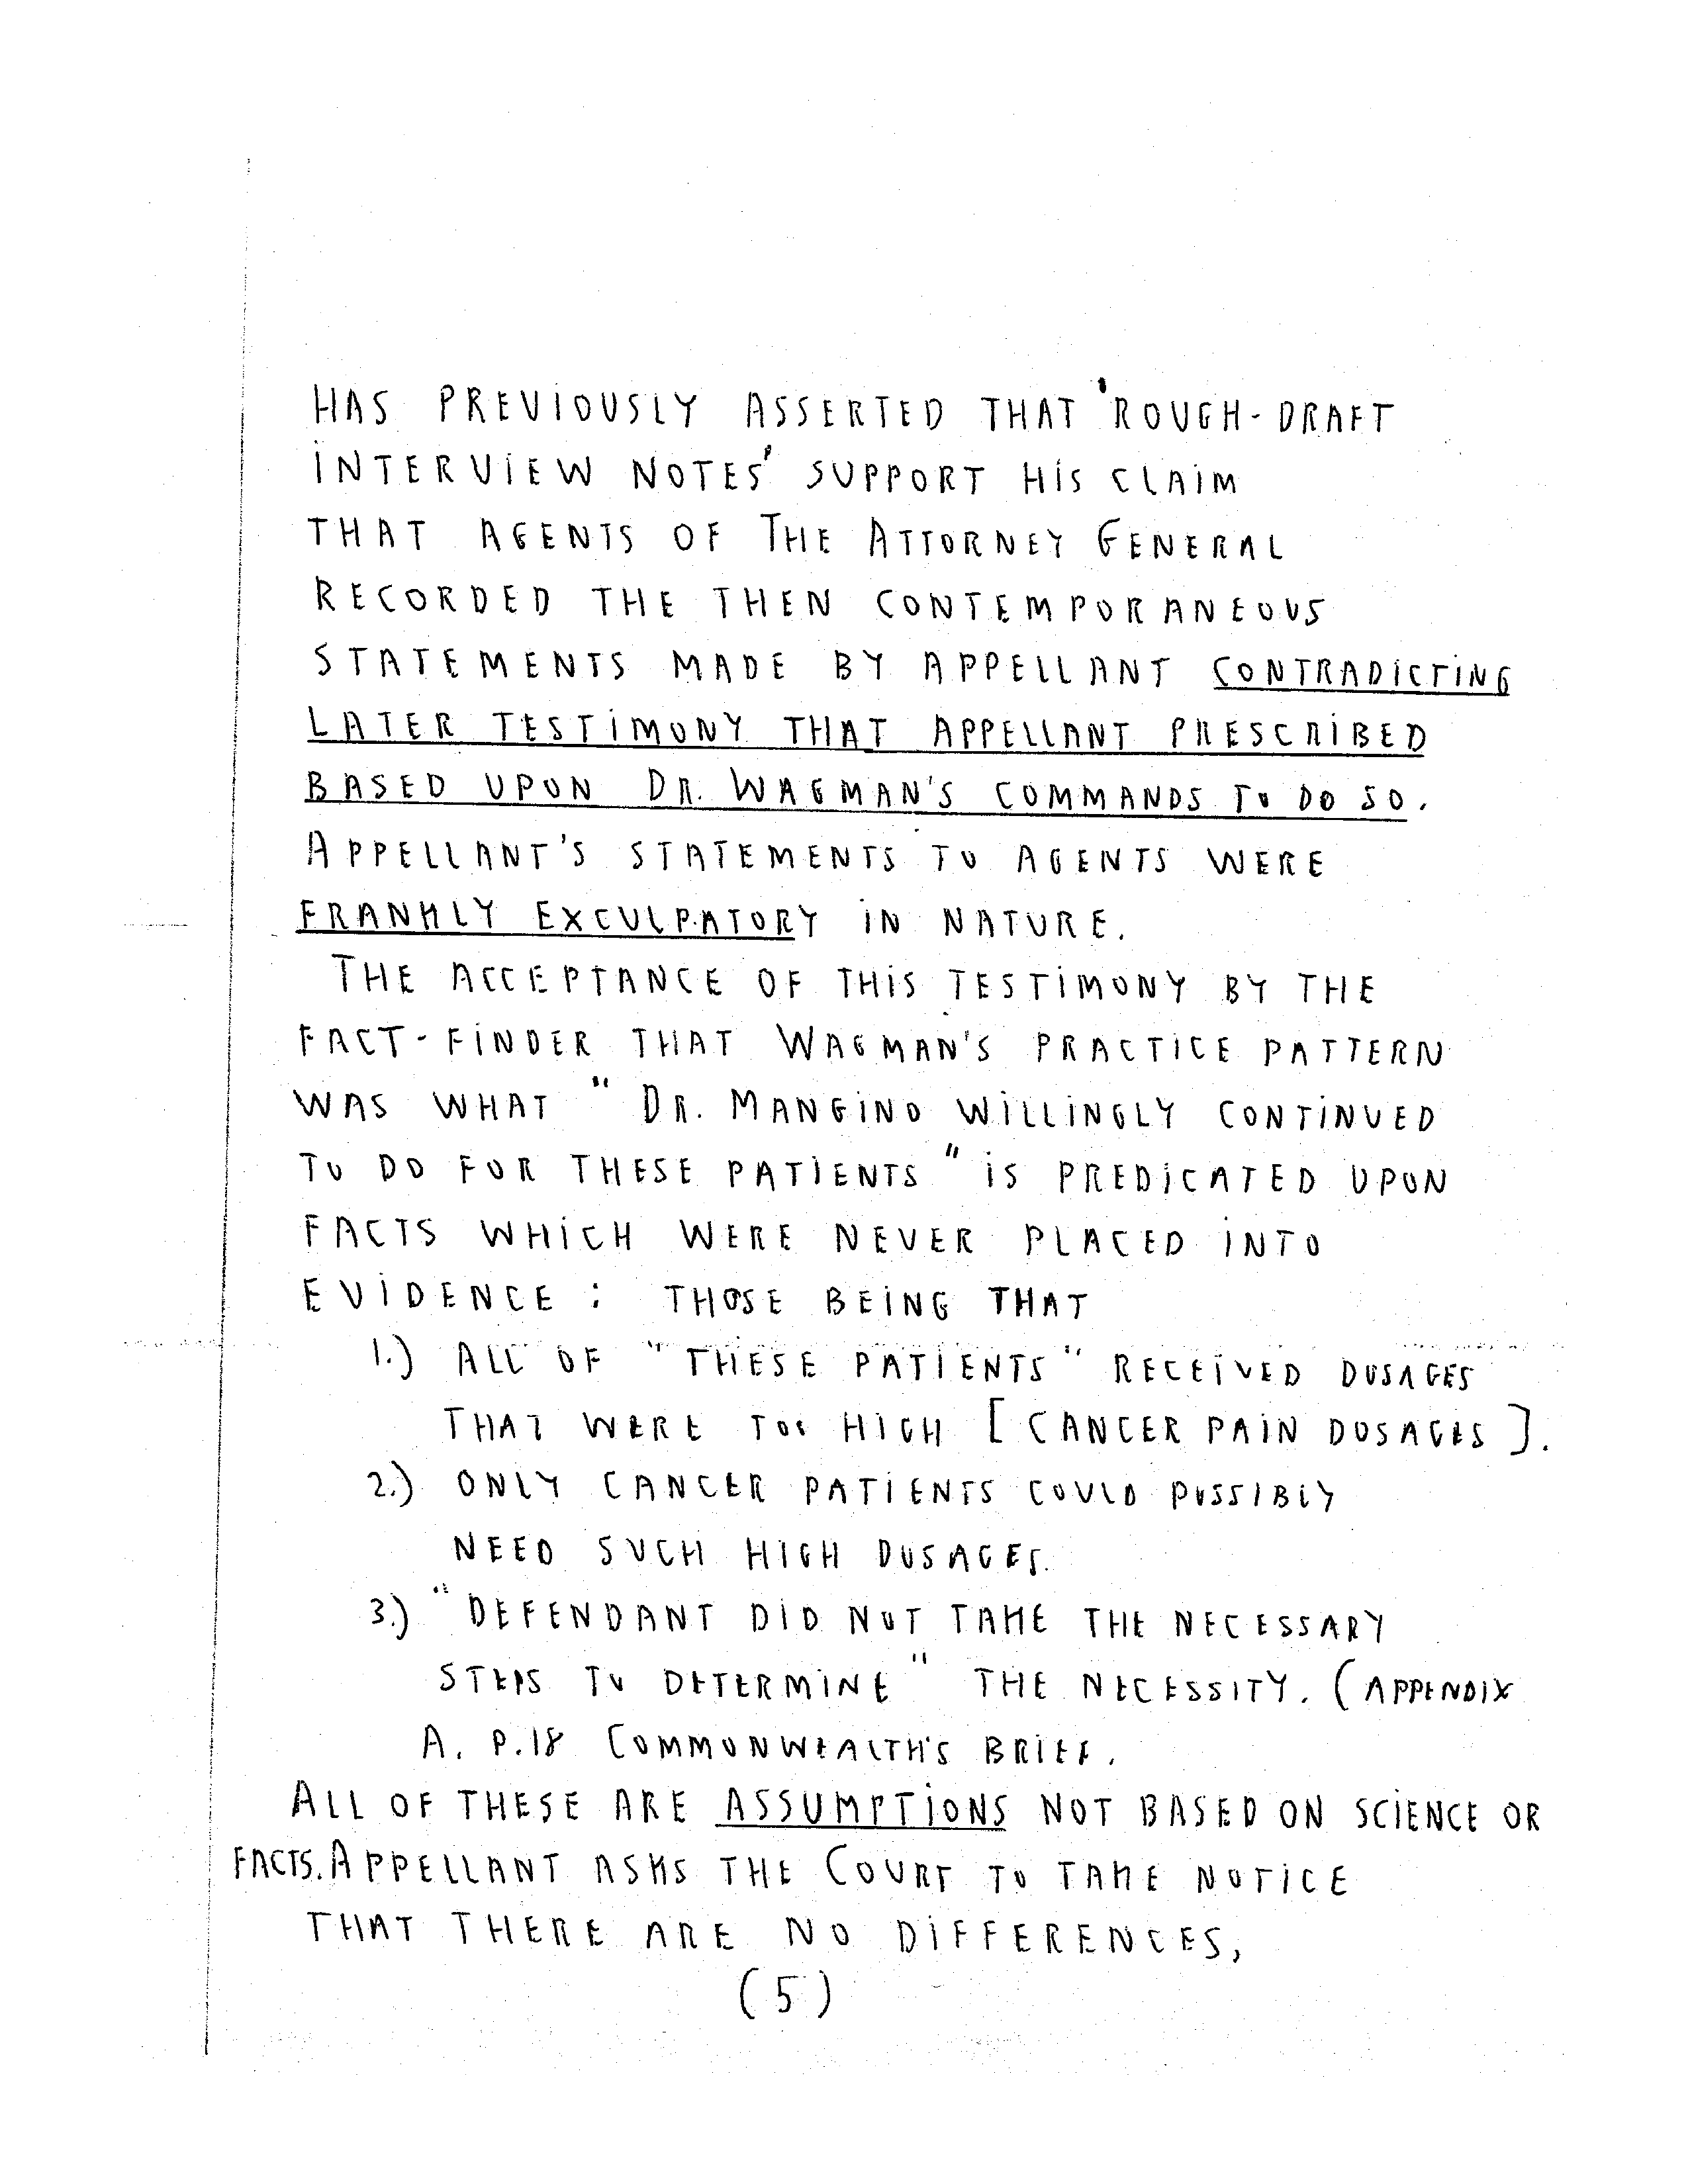 HAS PREVIOUSLY ASSERTED THAT 'ROUGH-DRAFT
INTERVIEW NOTES' SUPPORT HIS CLAIM
THAT AGENTS OF THE ATTORNEY GENERAL
RECORDED THE THEN CONTEMPORANEOUS
STATEMENTS MADE BY APPELLANT CONTRADICTING
LATER TESTIMONY THAT APPELLANT PRESCRIBED
BASED UPON DR. WAGMAN'S COMMANDS TO DO SO.
APPELLANT'S STATEMENTS TO AGENTS WERE
FRANKLY EXCULPATORY IN NATURE.
THE ACCEPTANCE OF THIS TESTIMONY BY THE
FACT-FINDER THAT WAGMAN'S PRACTICE PATTERN
WAS WHAT " DR. MANGINO WILLINGLY CONTINUED
TO DO FOR THESE PATIENTS " IS PREDICATED UPON
FACTS WHICH WERE NEVER PLACED INTO
EVIDENCE : THOSE BEING THAT
1.) ALL OF "THESE PATIENTS" RECEIVED DOSAGES
THAT WERE TOO HIGH [CANCER PAIN DOSAGES].
2.) ONLY CANCER PATIENTS COULD POSSIBLY
NEED SUCH HIGH DOSAGES.
3.) "DEFENDANT DID NOT TAKE THE NECESSARY
STEPS TO DETERMINE" THE NECESSITY. (APPENDIX
A. P.18 COMMONWEALTH'S BRIEF.
ALL OF THESE ARE ASSUMPTIONS NOT BASED ON SCIENCE OR
FACTS. APPELLANT ASKS THE COURT TO TAKE NOTICE
THAT THERE ARE NO DIFFERENCES,
(5)